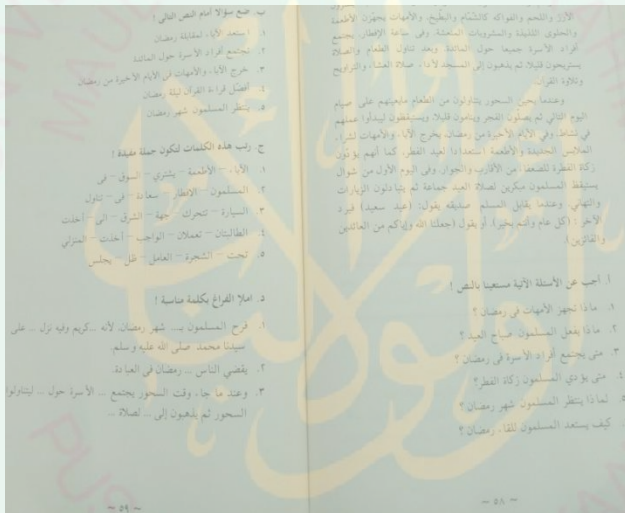 الأرز واللحم والفواكه كالشمام والبطيخ، والأمهات يجهزن الأطعمة
والحلوى اللذيذة والمشروبات المنعشة. وفى ساعة الإفطار، يجتمع
أفراد الأسرة جميعا حول المائدة. وبعد تناول الطعام والصلاة
يستريحون قليلا، ثم يذهبون إلى المسجد لأداء صلاة العشاء والتراويح
وتلاوة القرآن.
وعندما يحين السحور يتناولون من الطعام مايعينهم على صيام
اليوم التالي ثم يصلون الفجر وينامون قليلا، ويستيقظون ليبدأوا عملهم
في نشاط. وفي الأيام الأخيرة من رمضان، يخرج الآباء والأمهات لشراء
الملابس الجديدة والأطعمة استعدادا لعيد الفطر. كما أنهم يؤدون
زكاة الفطرة للضعفاء من الأقارب والجوار. وفى اليوم الأول من شوال
يستيقظ المسلمون مبكرين لصلاة العيد جماعة ثم يتبادلون الزيارات
والتهاني. وعندما يقابل المسلم صديقه يقول: (عيد سعيد) فيرد
الآخر: (كل عام وأنتم بخير)، أو يقول (جعلنا الله وإياكم من العائدين
والفائزين).
أ. أجب عن الأسئلة الآتية مستعينا بالنص !
١. ماذا تجهز الأمهات في رمضان ؟
٢. ماذا يفعل المسلمون صباح العيد ؟
٣. متى يجتمع أفراد الأسرة فى رمضان ؟
٤. متى يؤدي المسلمون زكاة الفطر؟
٥. لماذا ينتظر المسلمون شهر رمضان ؟
كيف يستعد المسلمون للقاء رمضان ؟
~ ٥٨ ~
ب. ضع سؤالا أمام النص التالى !
١. استعد الآباء لمقابلة رمضان
٢. تجتمع أفراد الأسرة حول المائدة
٣. خرج الآباء والأمهات فى الأيام الأخيرة من رمضان
٤. أفضل قراءة القرآن ليلة رمضان
٥. ينتظر المسلمون شهر رمضان
ج. رتب هذه الكلمات لتكون جملة مفيدة !
١. الآباء – الأطعمة – يشتري – السوق – فى
٢. المسلمون – الإفطار – سعادة – فى – تناول
٣. السيارة – تتحرك – جهة – الشرق – الى – أخذت
٤. الطالبتان – تعملان – الواجب – أخذت – المنزلي
٥. تحت – الشجرة – العامل – ظل – يجلس
د. املأ الفراغ بكلمة مناسبة !
١. فرح المسلمون بـ... شهر رمضان، لأنه ..كريم وفيه نزل ... على
سيدنا محمد صلى الله عليه وسلم.
٢. يقضي الناس ... رمضان فى العبادة.
٣. وعند ما جاء وقت السحور يجتمع ... الأسرة حول ... ليتناولوا
السحور ثم يذهبون إلى ... لصلاة ...
~ ٥٩ ~